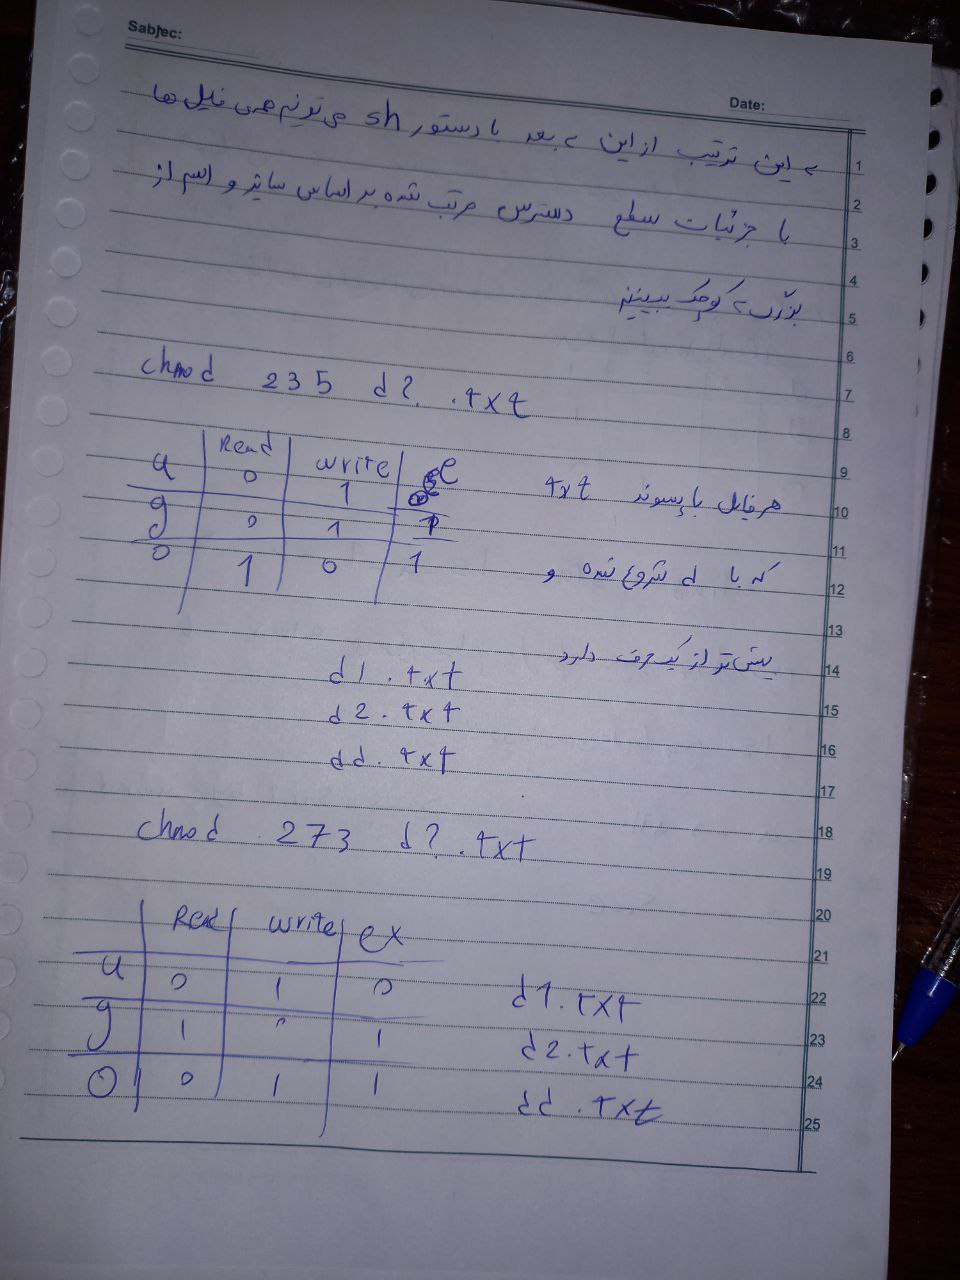 Sabjec:
Date:
به این ترتیب از این به بعد با دستور sh می تونیم همه ی فایل ها
با جزئیات سطح دسترس مرتب شده بر اساس سایز و اسم از
بزرگ به کوچک ببینیم
chmod 235 d?.txt
Read write e
u 0 1
g 0 1 1
o 1 0 1
هر فایل با پسوند txt
که با d شروع شده و
بیش تر از یک حرف دارد
d1.txt
d2.txt
dd.txt
chmod 273 d?.txt
Read write ex
u 0 1 0
g 1 0 1
o 0 1 1
d1.txt
d2.txt
dd.txt
1
2
3
4
5
6
7
8
9
10
11
12
13
14
15
16
17
18
19
20
21
22
23
24
25